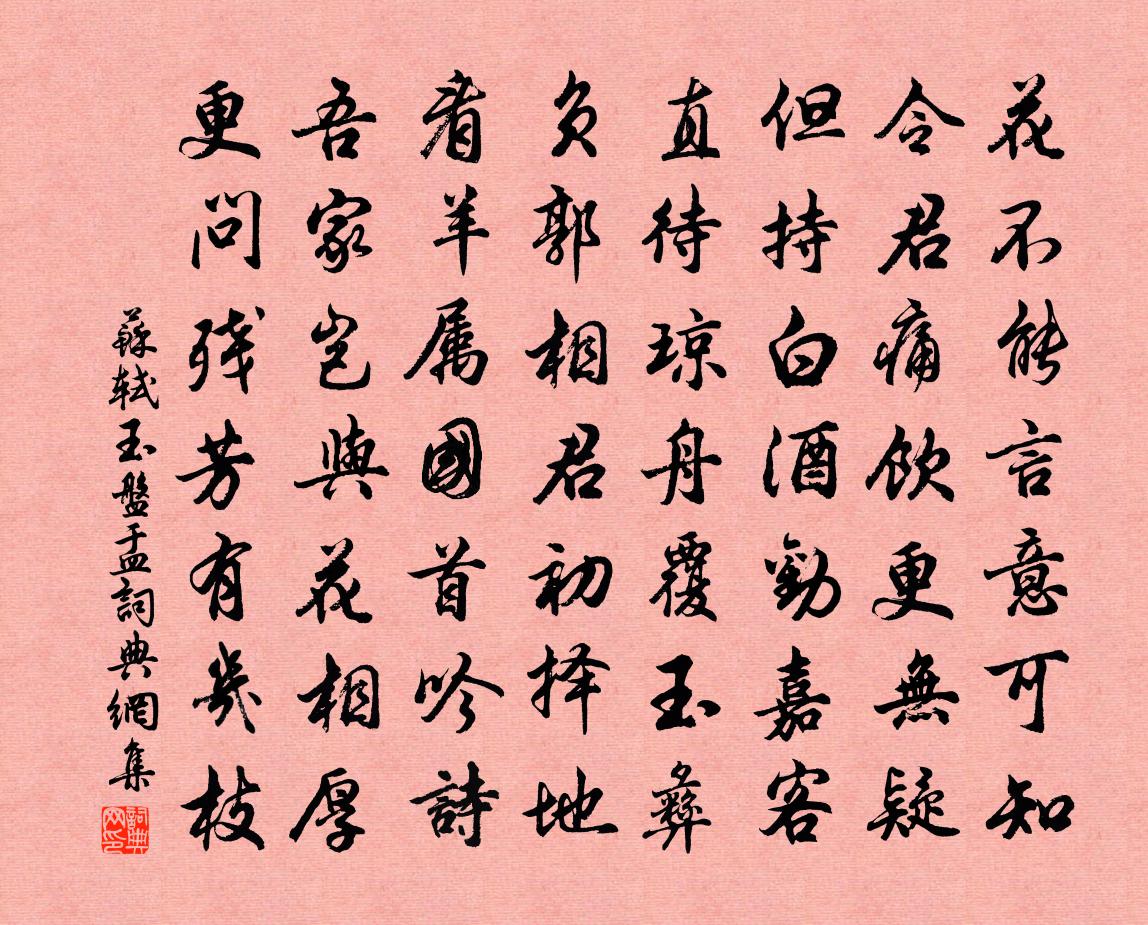 花不能言意可知
令君痛飲更無疑
但持白酒勸嘉客
直待琼舟覆玉彝
負郭相君初择地
看羊属國首吟詩
吾家岂與花相厚
更問残芳有幾枝
蘇轼玉盤盂詞典網集
詞典网印